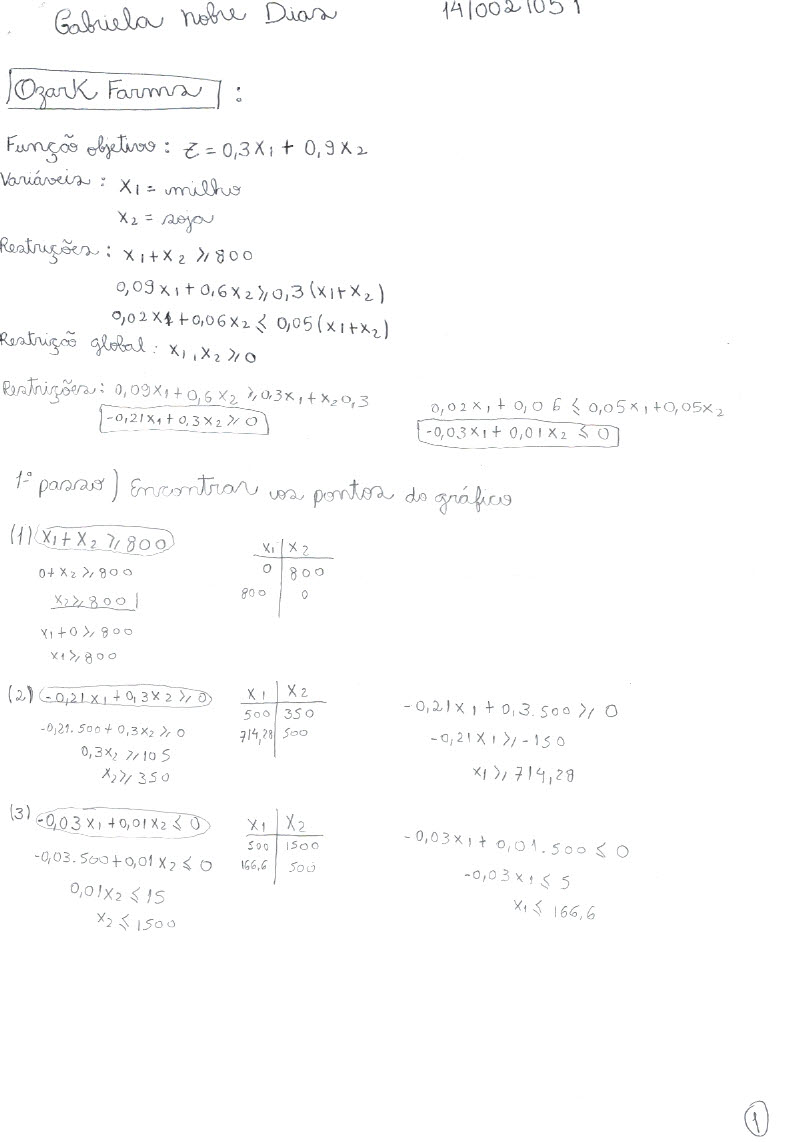 Gabriela Nobre Dias 14/0021051
Ozark Farms :
Função objetivo : Z = 0,3x₁ + 0,9x₂
Variáveis : x₁ = milho
x₂ = soja
Restrições : x₁+x₂ ≥ 800
0,09x₁+0,6x₂ ≥ 0,3(x₁+x₂)
0,02x1+0,06x₂ ≤ 0,05(x₁+x₂)
Restrição global : x₁,x₂ ≥ 0
Restrições : 0,09x₁+0,6x₂ ≥ 0,3x₁+x₂0,3
-0,21x₁+0,3x₂ ≥ 0
0,02x₁+0,06 ≤ 0,05x₁+0,05x₂
-0,03x₁+0,01x₂ ≤ 0
1º passo) Encontrar os pontos do gráfico
(1) x₁+x₂ ≥ 800
0+x₂ ≥ 800
x₂ ≥ 800
x₁+0 ≥ 800
x1 ≥ 800
x₁ | x₂
0 | 800
800 | 0
(2) -0,21x₁+0,3x₂ ≥ 0
-0,21.500+0,3x₂ ≥ 0
0,3x₂ ≥ 105
x₂ ≥ 350
x₁ | x₂
500 | 350
714,28 | 500
-0,21x₁+0,3.500 ≥ 0
-0,21x₁ ≥ -150
x₁ ≥ 714,28
(3) -0,03x₁+0,01x₂ ≤ 0
-0,03.500+0,01x₂ ≤ 0
0,01x₂ ≤ 15
x₂ ≤ 1500
x₁ | x₂
500 | 1500
166,6 | 500
-0,03x₁+0,01.500 ≤ 0
-0,03x₁ ≤ 5
x₁ ≤ 166,6
1